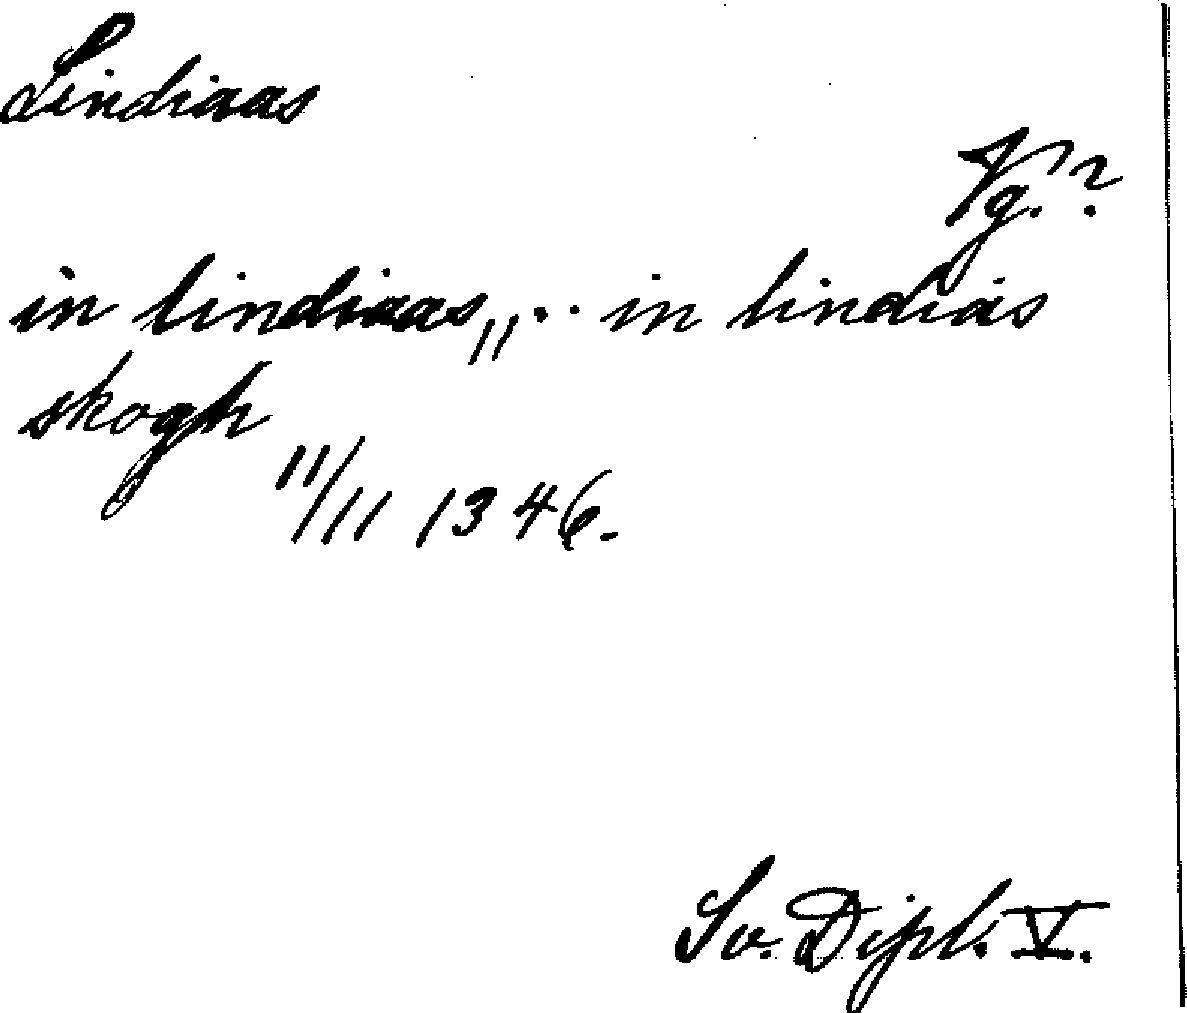 Lindiaas
Vg.?
in lindiaas,, .. in lindiäs
skogh
11/11 1346.
Sv. Dipl. V.